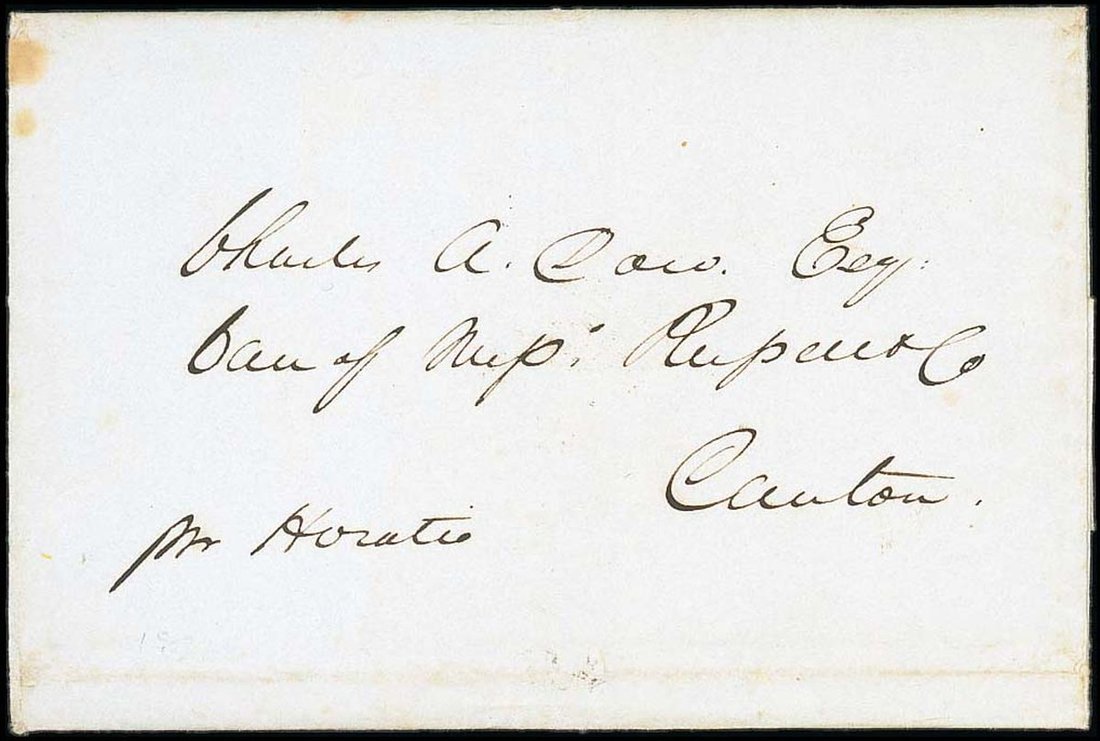 Charles A. Dow. Esq:
Care of Mess. Russell & Co
Canton.
pr Horatio